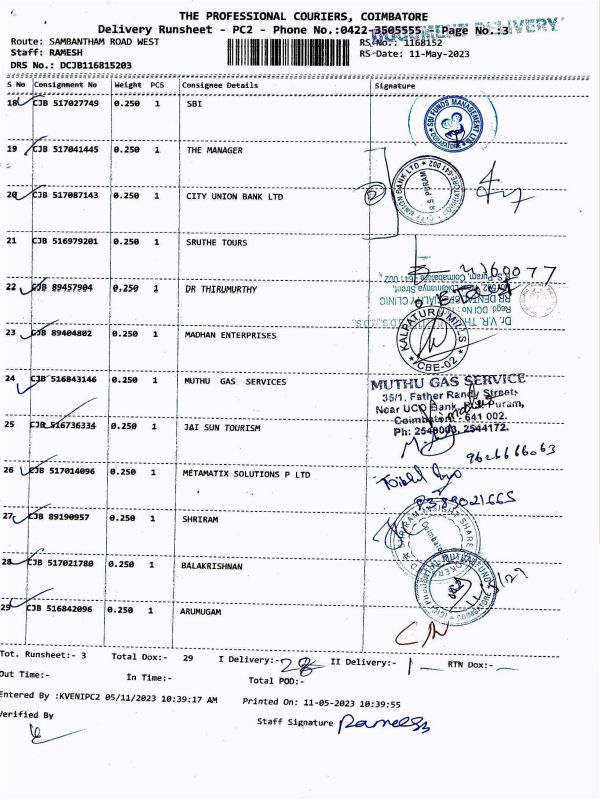 THE PROFESSIONAL COURIERS, COIMBATORE
Delivery Runsheet - PC2 - Phone No.:0422-3505555 Page No.:3
DOCUMENT DELIVERY
Route: SAMBANTHAM ROAD WEST
RS-No.: 1168152
Staff: RAMESH
RS-Date: 11-May-2023
DRS No.: DCJB116815203
S No Consignment No Weight PCS Consignee Details Signature
18 CJB 517027749 0.250 1 SBI
SBI FUNDS MANAGEMENT
19 CJB 517041445 0.250 1 THE MANAGER
20 CJB 517087143 0.250 1 CITY UNION BANK LTD
CITY UNION BANK LTD
R.S. PURAM
21 CJB 516979201 0.250 1 SRUTHE TOURS
22 CJB 89457904 0.250 1 DR THIRUMURTHY
RB DENTAL SPECIALITY CLINIC
23 CJB 89404802 0.250 1 MADHAN ENTERPRISES
KALPATURU MILLS
CBE-02
24 CJB 516843146 0.250 1 MUTHU GAS SERVICES
MUTHU GAS SERVICE
35/1, Father Randy Street,
Near UCO Bank, R.S. Puram,
Coimbatore - 641 002.
Ph: 2548003, 2544172.
25 CJB 516736334 0.250 1 JAI SUN TOURISM
9626666063
26 CJB 517014096 0.250 1 METAMATIX SOLUTIONS P LTD
8383021665
27 CJB 89190957 0.250 1 SHRIRAM
Coimbatore
28 CJB 517021780 0.250 1 BALAKRISHNAN
29 CJB 516842096 0.250 1 ARUMUGAM
Tot. Runsheet:- 3 Total Dox:- 29 I Delivery:- 28 II Delivery:- 1 RTN Dox:-
Out Time:- In Time:- Total POD:-
Entered By :KVENIPC2 05/11/2023 10:39:17 AM Printed On: 11-05-2023 10:39:55
Verified By
Staff Signature Ramesh